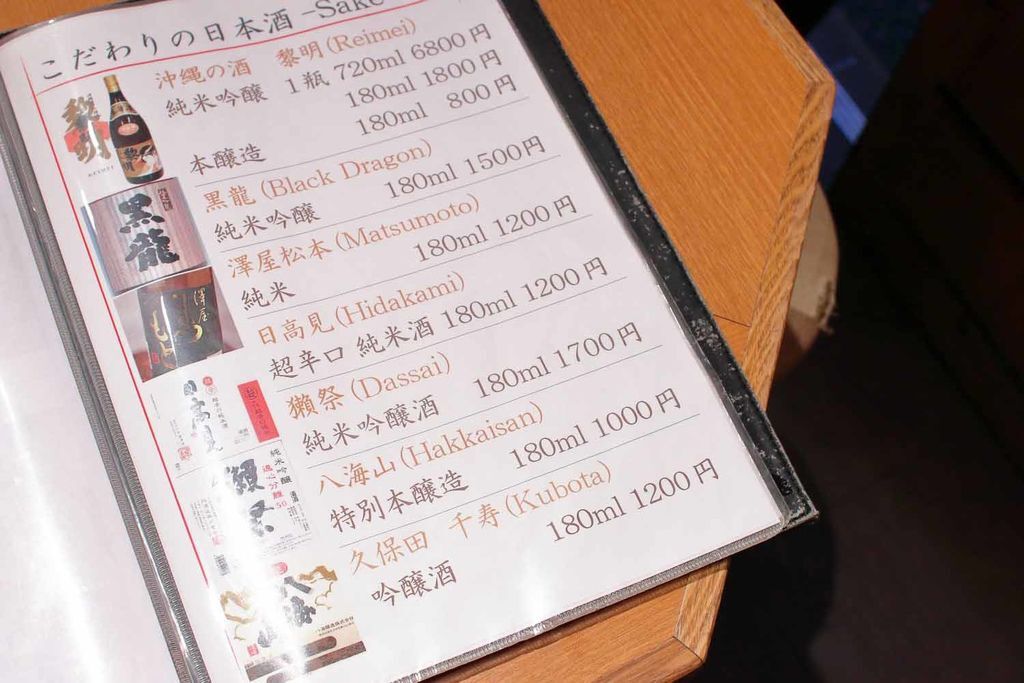 こだわりの日本酒 –Sake
沖縄の酒 黎明(Reimei)
純米吟醸 1瓶 720ml 6800円
180ml 1800円
本醸造 180ml 800円
黒龍(Black Dragon)
純米吟醸 180ml 1500円
澤屋松本(Matsumoto)
純米 180ml 1200円
日高見(Hidakami)
超辛口 純米酒 180ml 1200円
獺祭(Dassai)
純米吟醸酒 180ml 1700円
八海山(Hakkaisan)
特別本醸造 180ml 1000円
久保田 千寿(Kubota)
吟醸酒 180ml 1200円
黎明
REIMEI
黎明
黒龍
澤屋
日高見
純米吟醸
遠心分離
50
獺祭
八海山